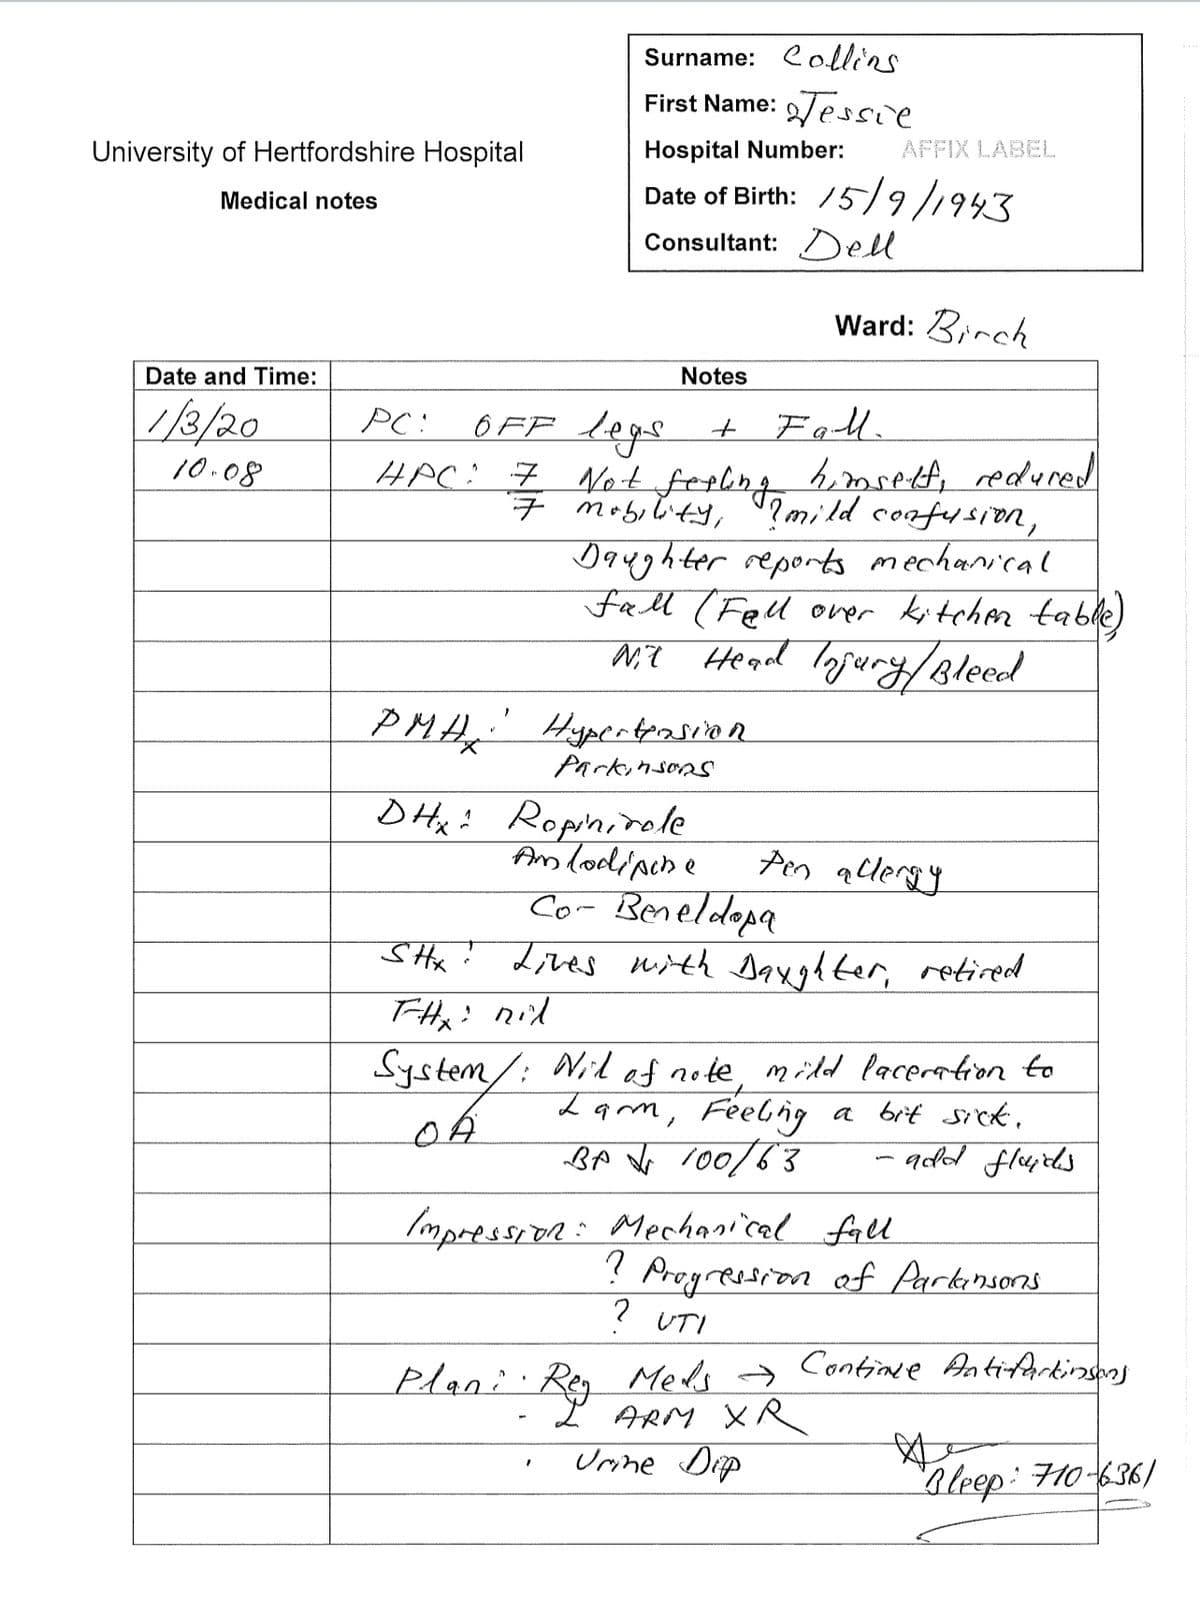 Surname: Collins
First Name: Jessie
University of Hertfordshire Hospital
Hospital Number: AFFIX LABEL
Medical notes
Date of Birth: 15/9/1943
Consultant: Dell
Ward: Birch
Date and Time: Notes
1/3/20 PC: OFF legs + Fall.
10.08 HPC: 7/7 Not feeling himself, reduced
mobility, ?mild confusion,
Daughter reports mechanical
fall (Fell over kitchen table)
Nil Head Injury/Bleed
PMHx: Hypertension
Parkinsons
DHx: Ropinirole
Amlodipine Pen allergy
Co-Beneldopa
SHx: Lives with Daughter, retired
FHx: nil
System/: Nil of note, mild laceration to
L arm, Feeling a bit sick.
OA
BP ↓ 100/63 - add fluids
Impression: Mechanical fall
? Progression of Parkinsons
? UTI
Plan: · Reg Meds → Continue AntiParkinsons
- L ARM XR
· Urine Dip
Bleep: 710-6361